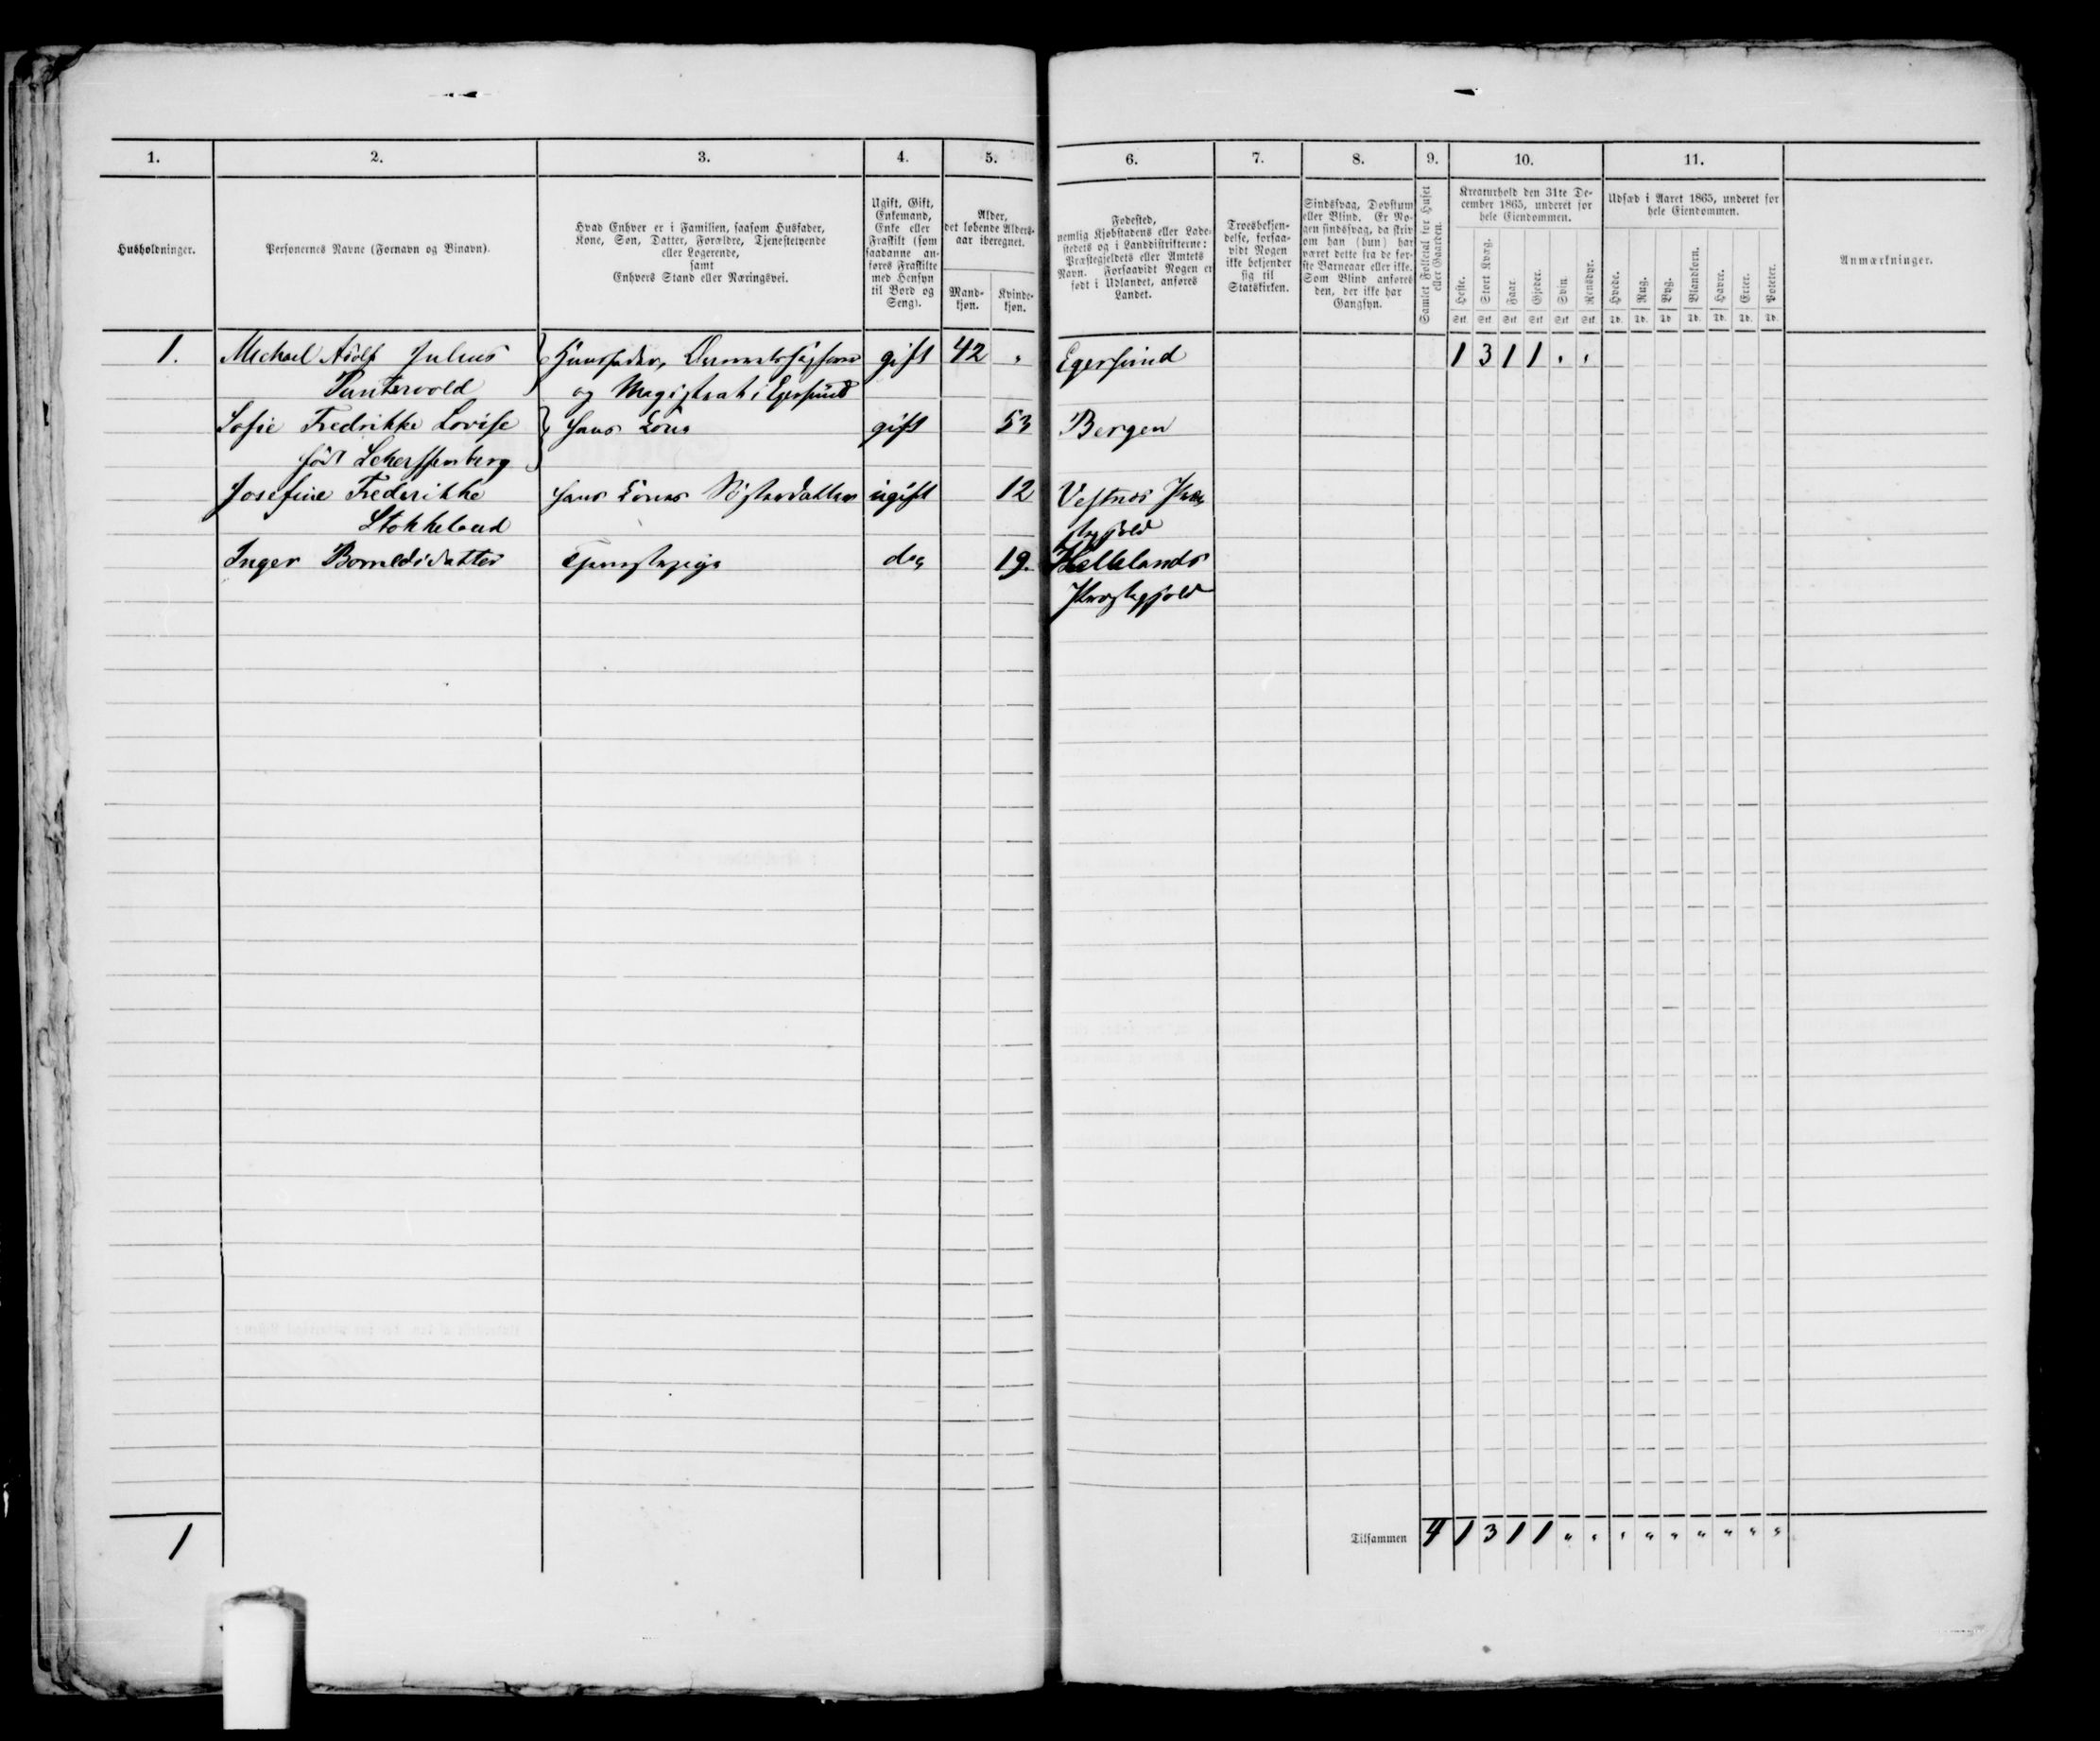 1.
2.
3.
4.
5.
6.
7.
8.
9.
10.
11.
Husholdninger.
Personernes Navne (Fornavn og Binavn).
Hvad Enhver er i Familien, saasom Husfader,
Kone, Søn, Datter, Forældre, Tjenestetyende
eller Logerende,
samt
Enhvers Stand eller Næringsvei.
Ugift, Gift,
Enkemand,
Enke eller
Fraskilt (som
saadanne an-
føres Fraskilte
med Hensyn
til Bord og
Seng).
Alder,
det løbende Alders-
aar iberegnet.
Mand-
kjøn.
Kvinde-
kjøn.
Fødested,
nemlig Kjøbstadens eller Lade-
stedets og i Landdistrikterne:
Præstegjeldets eller Amtets
Navn. Forsaavidt Nogen er
født i Udlandet, anføres
Landet.
Troesbekjen-
delse, forsaa-
vidt Nogen
ikke bekjender
sig til
Statskirken.
Sindssvag, Døvstum
eller Blind. Er No-
gen sindssvag, da skriv
om han (hun) har
været dette fra de før-
ste Barneaar eller ikke.
Som Blind anføres
den, der ikke har
Gangsyn.
Samlet Folketal for Huset
eller Gaarden.
Kreaturhold den 31te De-
cember 1865, underet for
hele Eiendommen.
Heste.
Stort Kvæg.
Faar.
Gjeder.
Svin.
Rensdyr.
Stk. Stk. Stk. Stk. Stk. Stk.
Udsæd i Aaret 1865, underet for
hele Eiendommen.
Hvede.
Rug.
Byg.
Blandkorn.
Havre.
Erter.
Poteter.
Td. Td. Td. Td. Td. Td. Td.
Anmærkninger.
1. Michael Adolf Julius Huusfader, gift 42 " Egersund 1 3 1 1 " "
Puntervold og Magistrat i Egersund
Sofie Fredrikke Lovise hans Kone gift 53 Bergen
født
Josefine Frederikke hans Kones Søsterdatter ugift 12 Vestnæs Præ-
Stokkeland stegjeld
Inger Tjenestepige do 19. Hellelands
Præstegjeld
1 Tilsammen 4 1 3 1 1 " " " " " " " " "